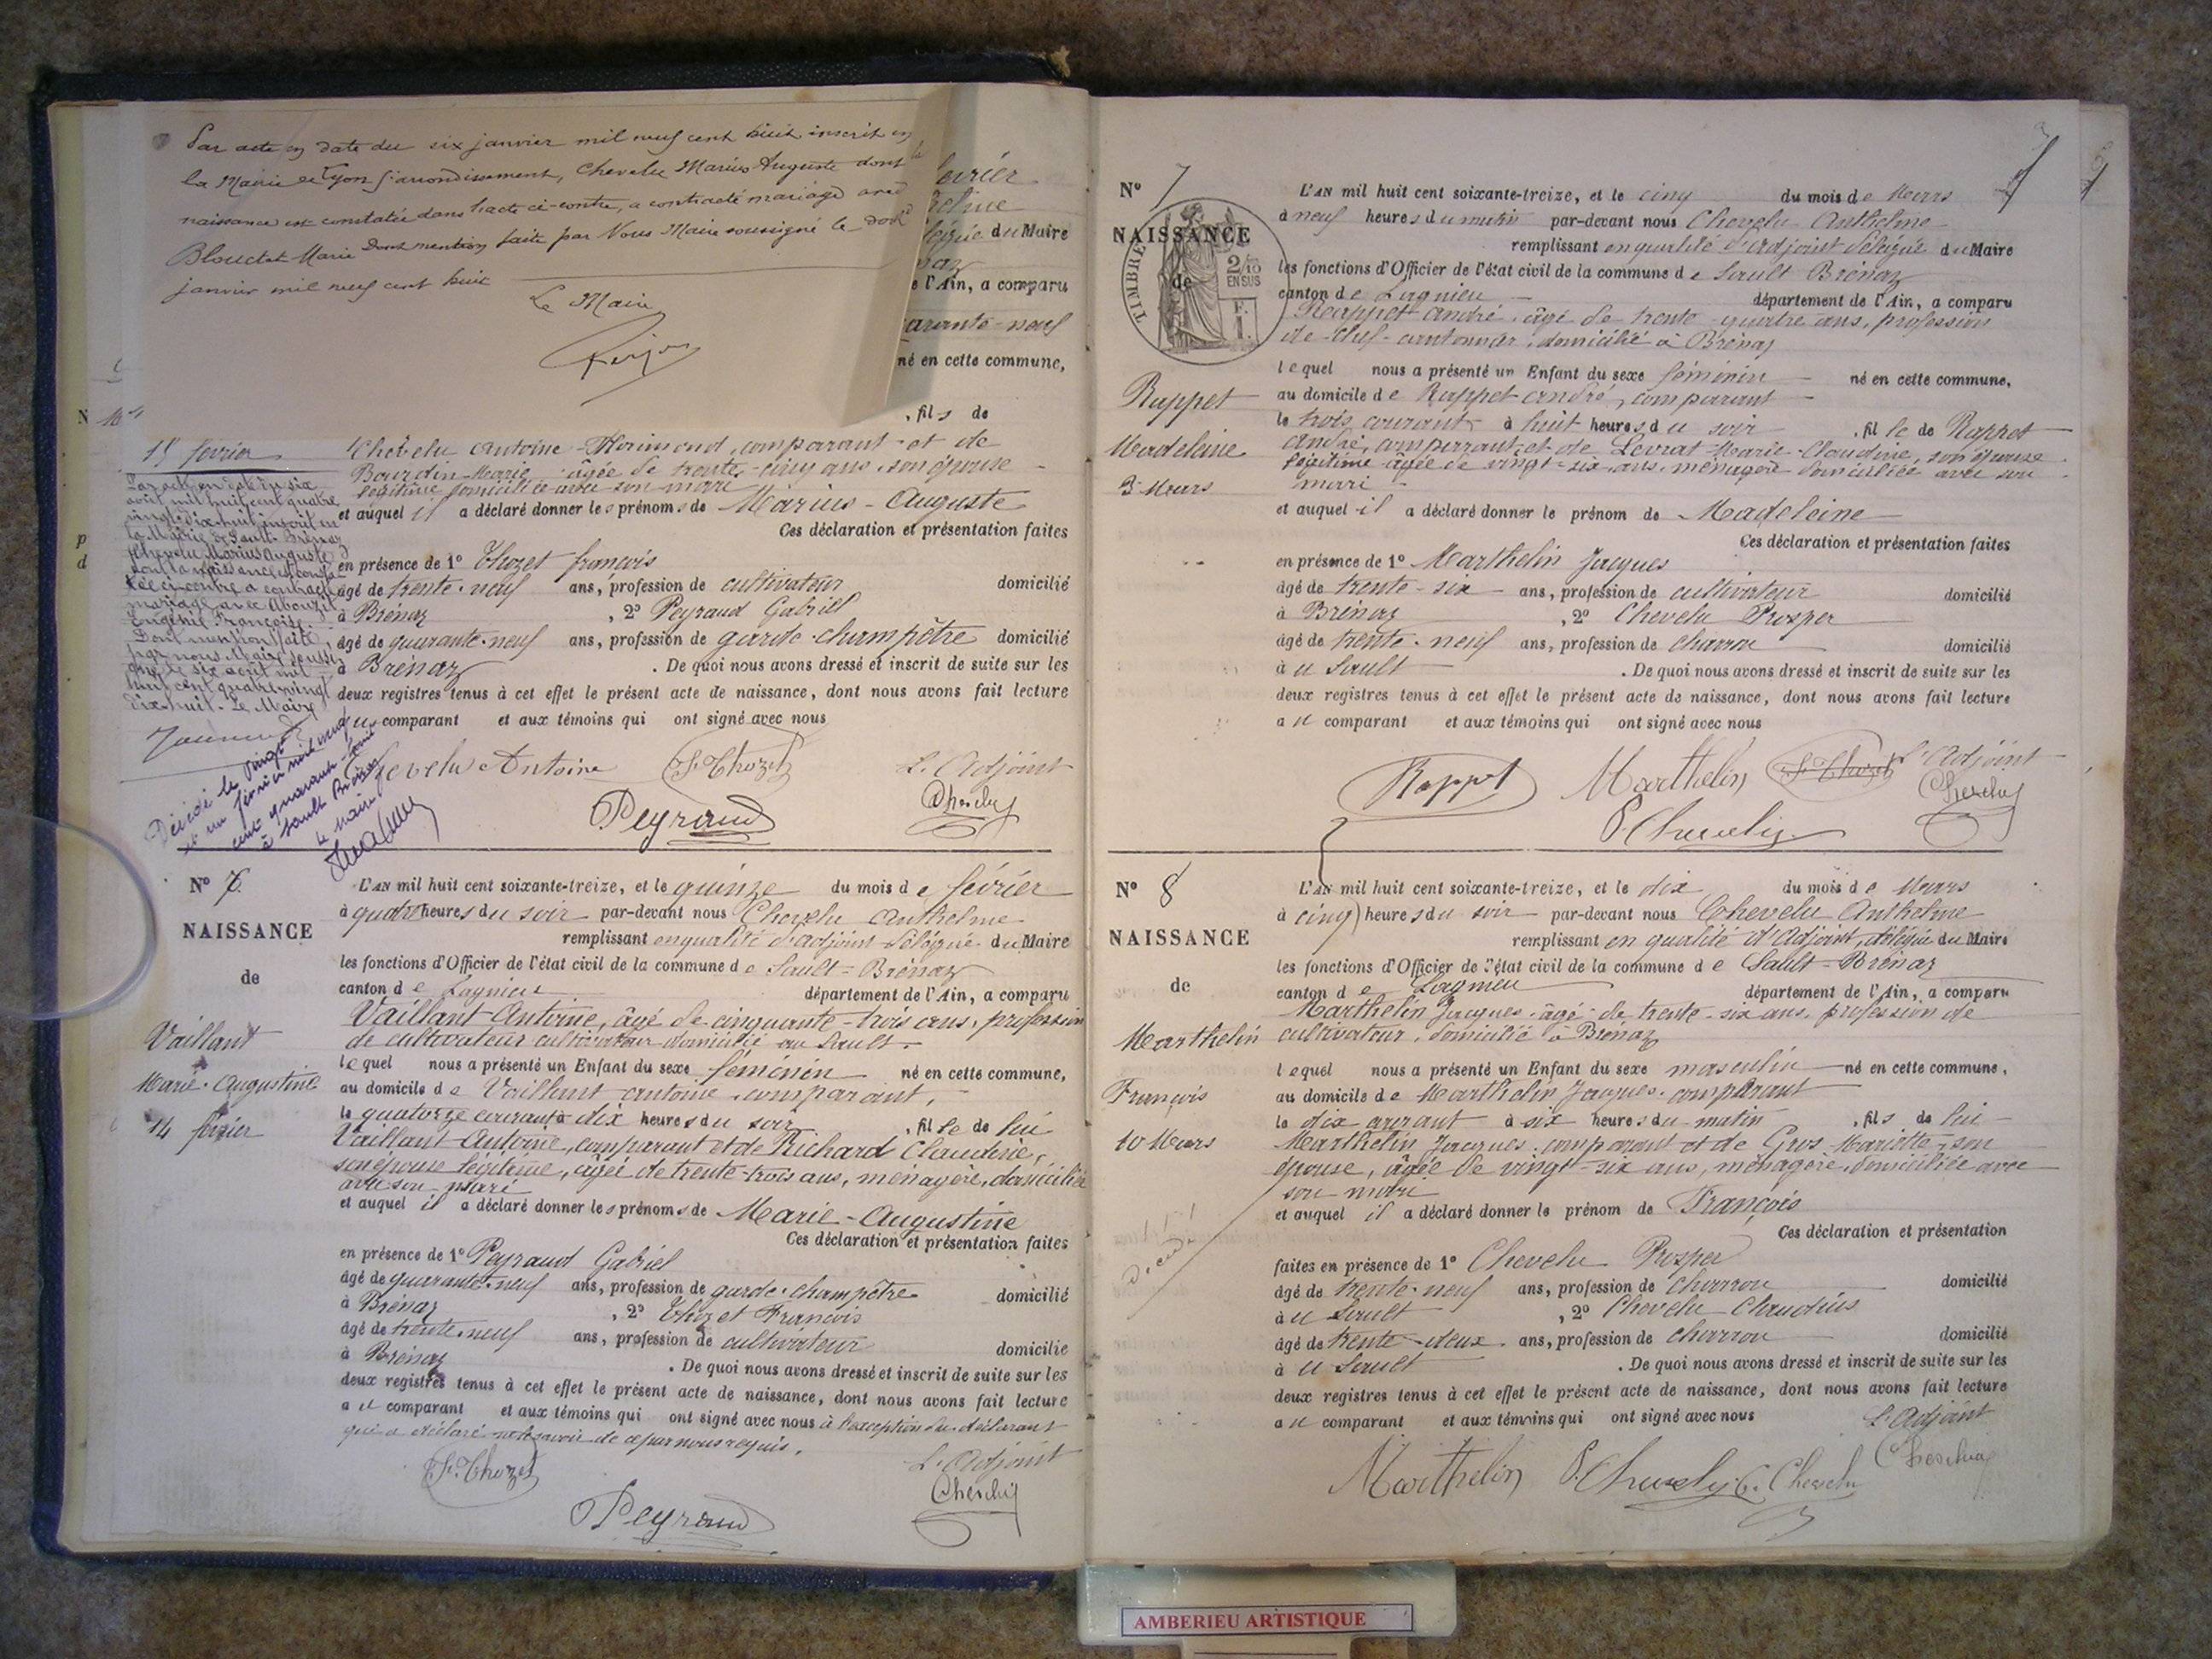 Par acte en date du six janvier mil neuf cent huit inscrit en
la Mairie de Lyon arrondissement, Chevelu Marius Auguste dont la
naissance est constatée dans l'acte ci-contre, a contracté mariage avec
Marie Dont mention faite par Nous Maire soussigné le
janvier mil neuf cent huit
Le Maire
février
du Maire
e l'Ain, a comparu
quarante-neuf
né en cette commune,
, fils de
15 février
Chevelu Antoine comparant et de
Bourdin Marie âgée de trente-cinq ans, son épouse
légitime domiciliée avec son mari
et auquel il a déclaré donner les prénoms de Marius-Auguste
Ces déclaration et présentation faites
en présence de 1° Thozet françois
âgé de trente-neuf ans, profession de cultivateur domicilié
à Brénaz, 2° Peyraud Gabriel
âgé de quarante-neuf ans, profession de garde-champêtre domicilié
à Brénaz. De quoi nous avons dressé et inscrit de suite sur les
deux registres tenus à cet effet le présent acte de naissance, dont nous avons fait lecture
au comparant et aux témoins qui ont signé avec nous
Par acte en date du six
août mil huit cent quatre
vingt dix-huit inscrit en
la Mairie de Sault-Brénaz
Chevelu Marius Auguste
dont la naissance est consta-
tée ci-contre a contracté
mariage avec
Eugénie Françoise.
Dont mention faite
par nous Maire soussi-
gné le six août mil
huit cent quatre-vingt
dix-huit. Le Maire
Décédé le vingt
et un février mil neuf
cent quarante
à Sault Brénaz
Le Maire
Chevelu Antoine F. Thozet L'Adjoint
Peyraud Chevelu
N° 6
NAISSANCE
de
Vaillant
Marie-Augustine
14 février
L'AN mil huit cent soixante-treize, et le quinze du mois de février
à quatre heures du soir par-devant nous Chevelu Anthelme
remplissant en qualité d'adjoint délégué du Maire
les fonctions d'Officier de l'état civil de la commune de Sault-Brénaz
canton de Lagnieu département de l'Ain, a comparu
Vaillant Antoine, âgé de cinquante-trois ans, profession
de cultivateur cultivateur domicilié au Sault
lequel nous a présenté un Enfant du sexe féminin né en cette commune,
au domicile de Vaillant antoine comparant,
le quatorze courant à dix heures du soir, fille de lui
Vaillant Antoine, comparant et de Richard Claudine,
son épouse légitime, âgée de trente-trois ans, ménagère, domiciliée
avec son mari
et auquel il a déclaré donner les prénoms de Marie-Augustine
Ces déclaration et présentation faites
en présence de 1° Peyraud Gabriel
âgé de quarante-neuf ans, profession de garde-champêtre domicilié
à Brénaz, 2° Thozet Francois
âgé de trente-neuf ans, profession de cultivateur domicilié
à Brénaz. De quoi nous avons dressé et inscrit de suite sur les
deux registres tenus à cet effet le présent acte de naissance, dont nous avons fait lecture
au comparant et aux témoins qui ont signé avec nous à l'exception du déclarant
qui a déclaré ne le savoir de ce par nous requis.
F. Thozet L'Adjoint
Peyraud Chevelu
N° 7
NAISSANCE
de
TIMBRE
2/10
EN SUS
F.
1.
Rappet
Madeleine
3 Mars
L'AN mil huit cent soixante-treize, et le cinq du mois de Mars
à neuf heures du matin par-devant nous Chevelu Anthelme
remplissant en qualité d'adjoint délégué du Maire
les fonctions d'Officier de l'état civil de la commune de Sault Brénaz
canton de Lagnieu département de l'Ain, a comparu
Rappet André, âgé de trente-quatre ans, profession
de chef-cantonnier, domicilié à Brénaz
lequel nous a présenté un Enfant du sexe féminin né en cette commune,
au domicile de Rappet andré, comparant
le trois courant à huit heures du soir, fille de Rappet
André, comparrant et de Levrat Marie-Claudine, son épouse
légitime âgée de vingt-six ans, ménagère domiciliée avec son
mari
et auquel il a déclaré donner le prénom de Madeleine
Ces déclaration et présentation faites
en présence de 1° Marthelin Jacques
âgé de trente-six ans, profession de cultivateur domicilié
à Brénaz, 2° Chevelu Prosper
âgé de trente-neuf ans, profession de charron domicilié
à u Sault. De quoi nous avons dressé et inscrit de suite sur les
deux registres tenus à cet effet le présent acte de naissance, dont nous avons fait lecture
au comparant et aux témoins qui ont signé avec nous
Rappet Marthelin F. Thozet L'Adjoint
P. Chevelu Chevelu
N° 8
NAISSANCE
de
Marthelin
François
10 Mars
L'AN mil huit cent soixante-treize, et le dix du mois de Mars
à cinq heures du soir par-devant nous Chevelu Anthelme
remplissant en qualité d'Adjoint, délégué du Maire
les fonctions d'Officier de l'état civil de la commune de Sault-Brénaz
canton de Lagnieu département de l'Ain, a comparu
Marthelin Jacques, âgé de trente-six ans, profession de
cultivateur, domicilié à Brénaz
lequel nous a présenté un Enfant du sexe masculin né en cette commune,
au domicile de Marthelin Jacques, comparant
le dix courant à six heures du matin, fils de lui
Marthelin Jacques, comparant et de Gros Mariette, son
épouse, âgée de vingt-six ans, ménagère, domiciliée avec
son mari
et auquel il a déclaré donner le prénom de François
Ces déclaration et présentation
faites en présence de 1° Chevelu Prosper
âgé de trente-neuf ans, profession de charron domicilié
à u Sault, 2° Chevelu Claudius
âgé de trente-deux ans, profession de charron domicilié
à u Sault. De quoi nous avons dressé et inscrit de suite sur les
deux registres tenus à cet effet le présent acte de naissance, dont nous avons fait lecture
au comparant et aux témoins qui ont signé avec nous L'Adjoint
Marthelin P. Chevelu C. Chevelu Chevelu
AMBERIEU ARTISTIQUE